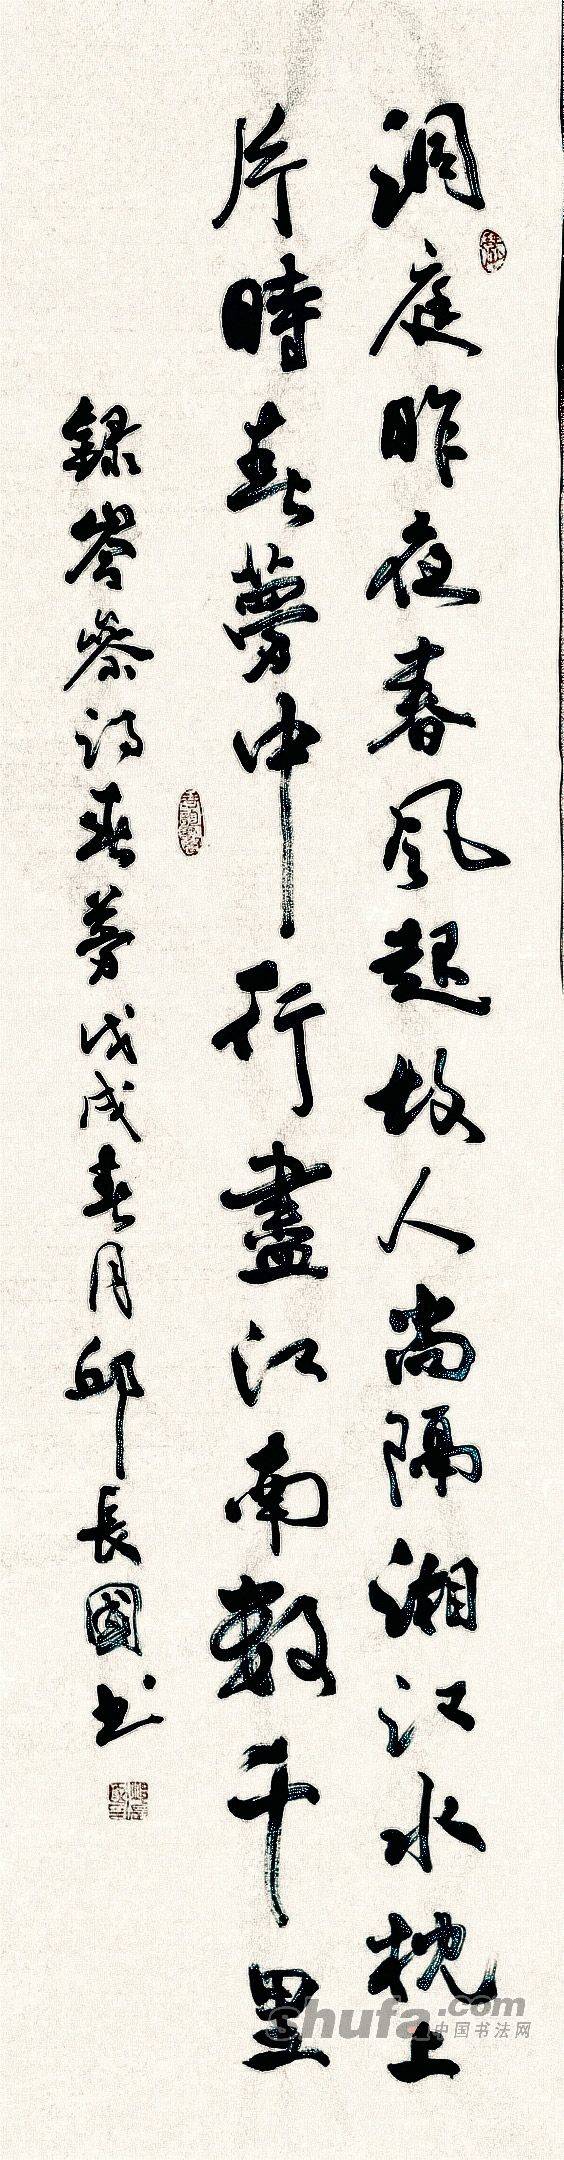 洞庭昨夜春风起故人尚隔湘江水枕上
片時春夢中行盡江南數千里
錄岑參詩春夢戊戌春月邱長國书
shufa.com
中国书法网